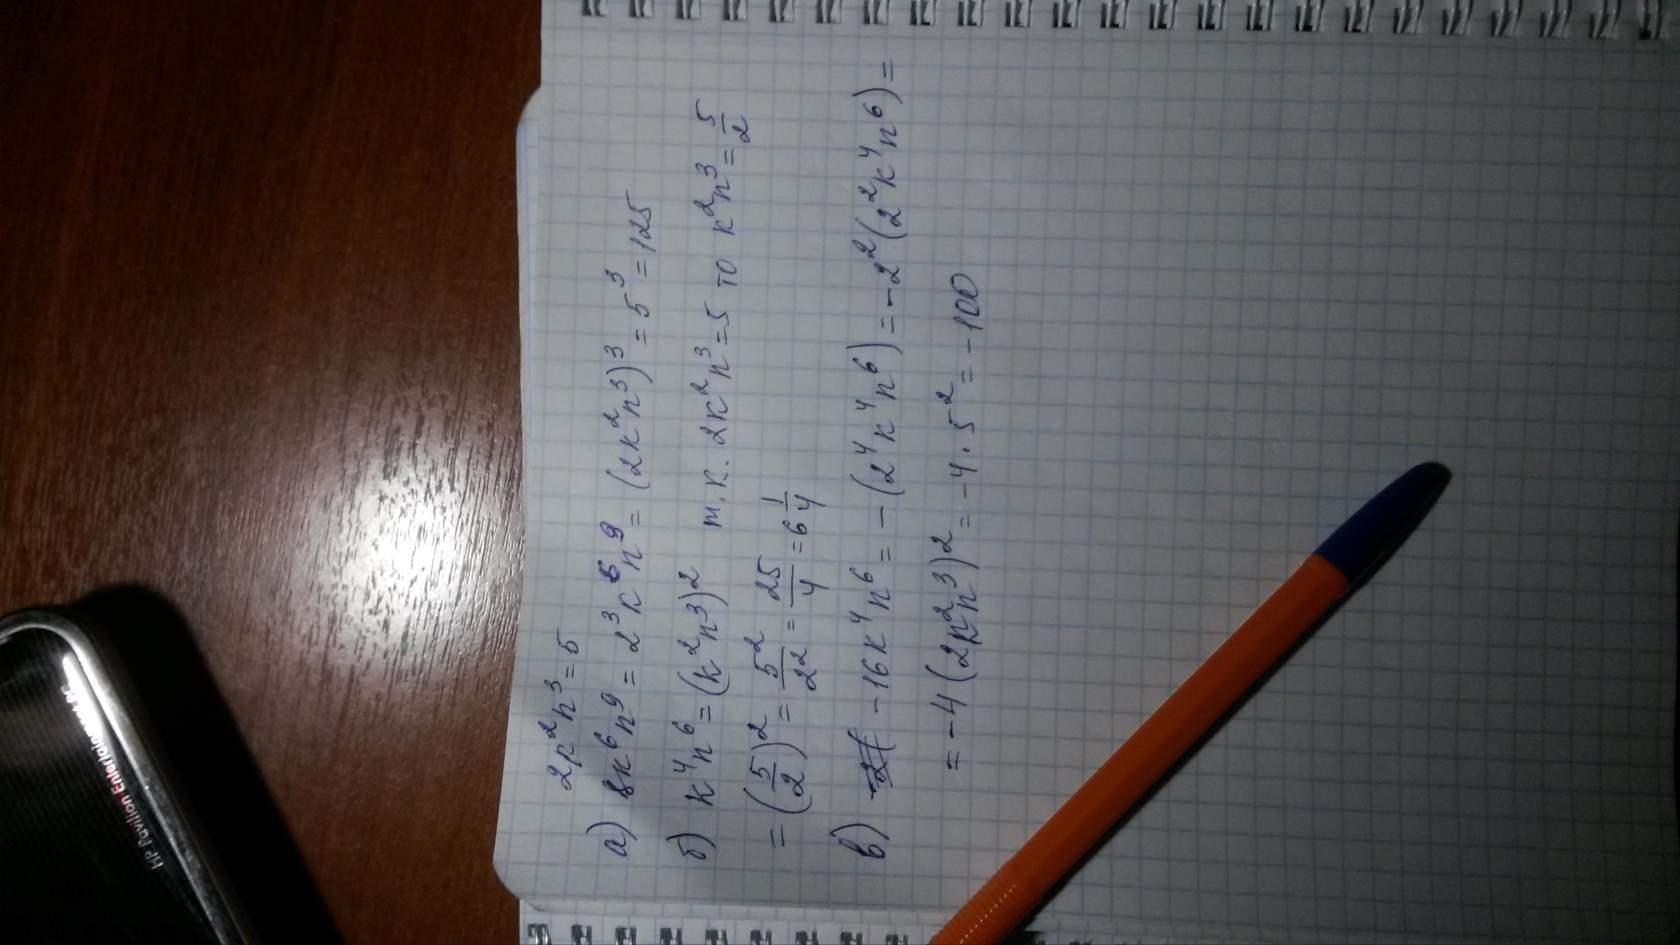 2k²n³=5
а) 8k⁶n⁹ = 2³k⁶n⁹ = (2k²n³)³ = 5³ = 125
б) k⁴n⁶ = (k²n³)2 т.к. 2k²n³=5 то k²n³ = 5/2
= (5/2)² = 5²/2² = 25/4 = 6 1/4
в) -16k⁴n⁶ = -(2⁴k⁴n⁶) = -2²(2²k⁴n⁶) =
= -4(2k²n³)2 = -4·5² = -100
HP Pavilion Entertainment PC